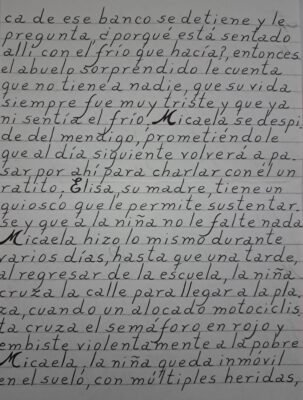 ca de ese banco se detiene y le
pregunta, ¿porqué está sentado
alli con el frío que hacía?, entonces
el abuelo sorprendido le cuenta
que no tiene a nadie, que su vida
siempre fue muy triste y que ya
ni sentía el frío. Micaela se despi
de del mendigo, prometiéndole
que al día siguiente volverá a pa_
sar por ahí para charlar con él un
ratito, Elisa, su madre, tiene un
quiosco que le permite sustentar_
se y que a la niña no le falte nada
Micaela hizo lo mismo durante
varios días, hasta que una tarde,
al regresar de la escuela, la niña
cruza la calle para llegar a la pla_
za, cuando un alocado motociclis_
ta cruza el semáforo en rojo y
embiste violentamente a la pobre
Micaela, la niña queda inmóvil
en el suelo, con múltiples heridas,